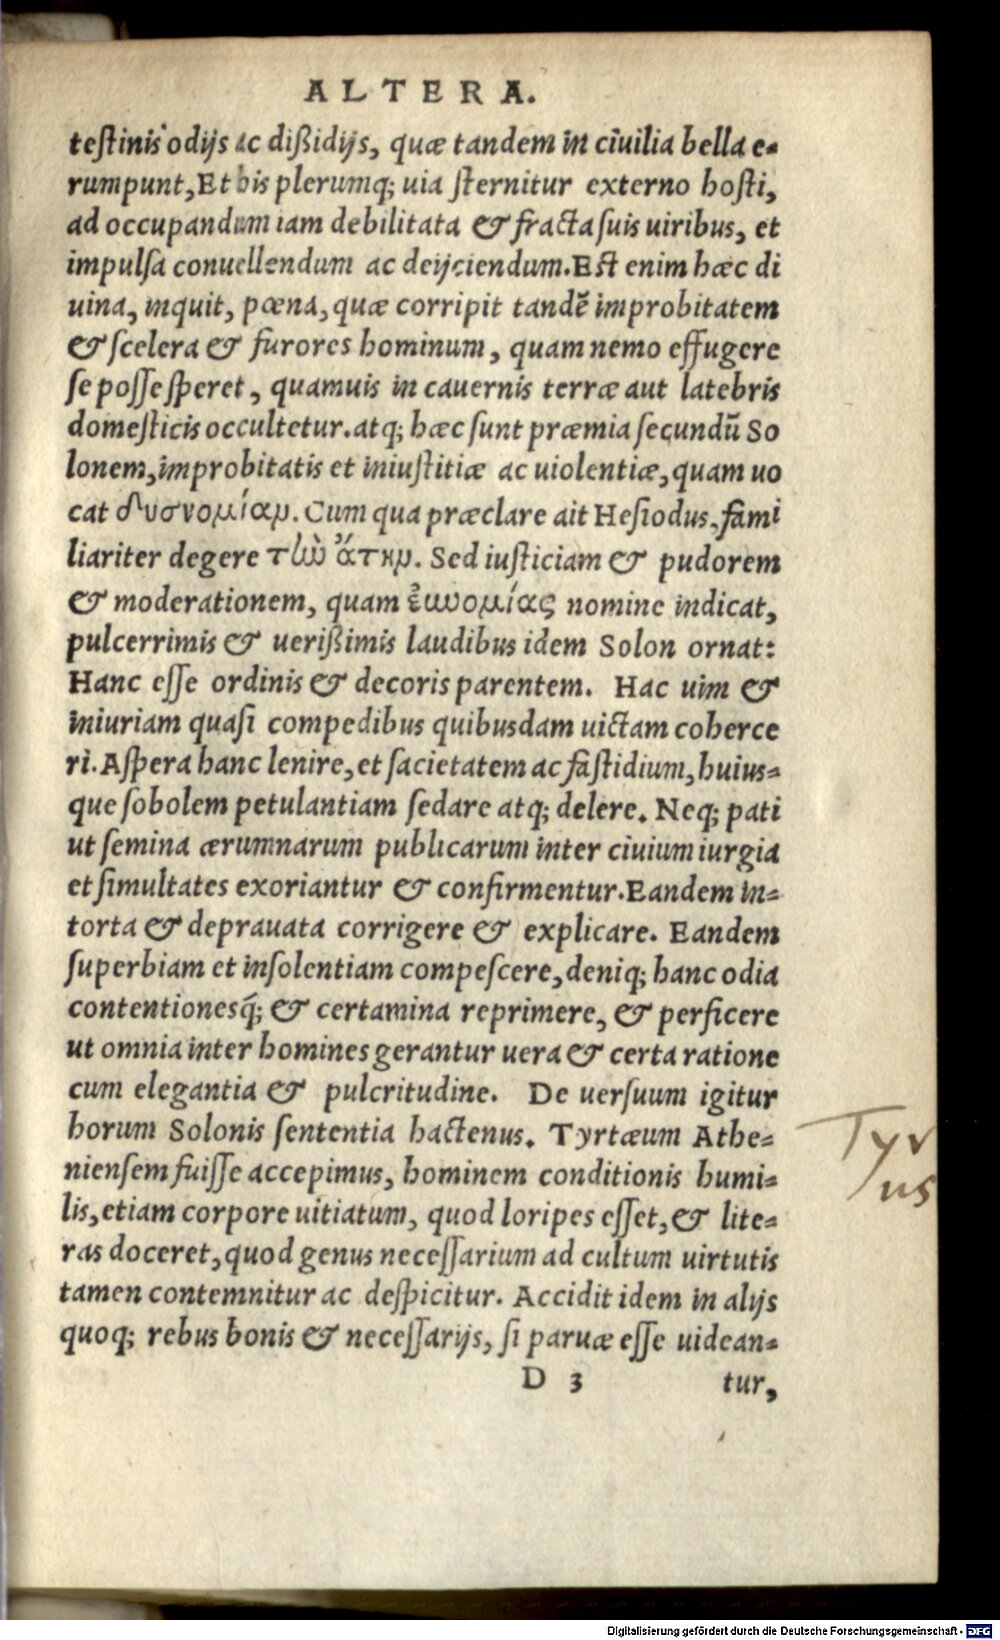 ALTERA.
testinis odijs ac dißidijs, quæ tandem in ciuilia bella e-
rumpunt, Et his plerumq; uia sternitur externo hosti,
ad occupandum iam debilitata & fracta suis uiribus, et
impulsa conuellendum ac deijciendum. Est enim hæc di
uina, inquit, pœna, quæ corripit tandẽ improbitatem
& scelera & furores hominum, quam nemo effugere
se posse speret, quamuis in cauernis terræ aut latebris
domesticis occultetur. atq; hæc sunt præmia secundũ So
lonem, improbitatis et iniustitiæ ac uiolentiæ, quam uo
cat δυσνομίαν. Cum qua præclare ait Hesiodus, fami
liariter degere τὼ ἄτην. Sed iusticiam & pudorem
& moderationem, quam ἐυνομίας nomine indicat,
pulcerrimis & uerißimis laudibus idem Solon ornat:
Hanc esse ordinis & decoris parentem. Hac uim &
iniuriam quasi compedibus quibusdam uictam coherce
ri. Aspera hanc lenire, et sacietatem ac fastidium, huius-
que sobolem petulantiam sedare atq; delere. Neq; pati
ut semina ærumnarum publicarum inter ciuium iurgia
et simultates exoriantur & confirmentur. Eandem in-
torta & deprauata corrigere & explicare. Eandem
superbiam et insolentiam compescere, deniq; hanc odia
contentionesq́; & certamina reprimere, & perficere
ut omnia inter homines gerantur uera & certa ratione
cum elegantia & pulcritudine. De uersuum igitur
horum Solonis sententia hactenus. Tyrtæum Athe-
niensem fuisse accepimus, hominem conditionis humi-
lis, etiam corpore uitiatum, quod loripes esset, & lite-
ras doceret, quod genus necessarium ad cultum uirtutis
tamen contemnitur ac despicitur. Accidit idem in alijs
quoq; rebus bonis & necessarijs, si paruæ esse uidean-
D 3 tur,
Tyr
us
Digitalisierung gefördert durch die Deutsche Forschungsgemeinschaft - DFG